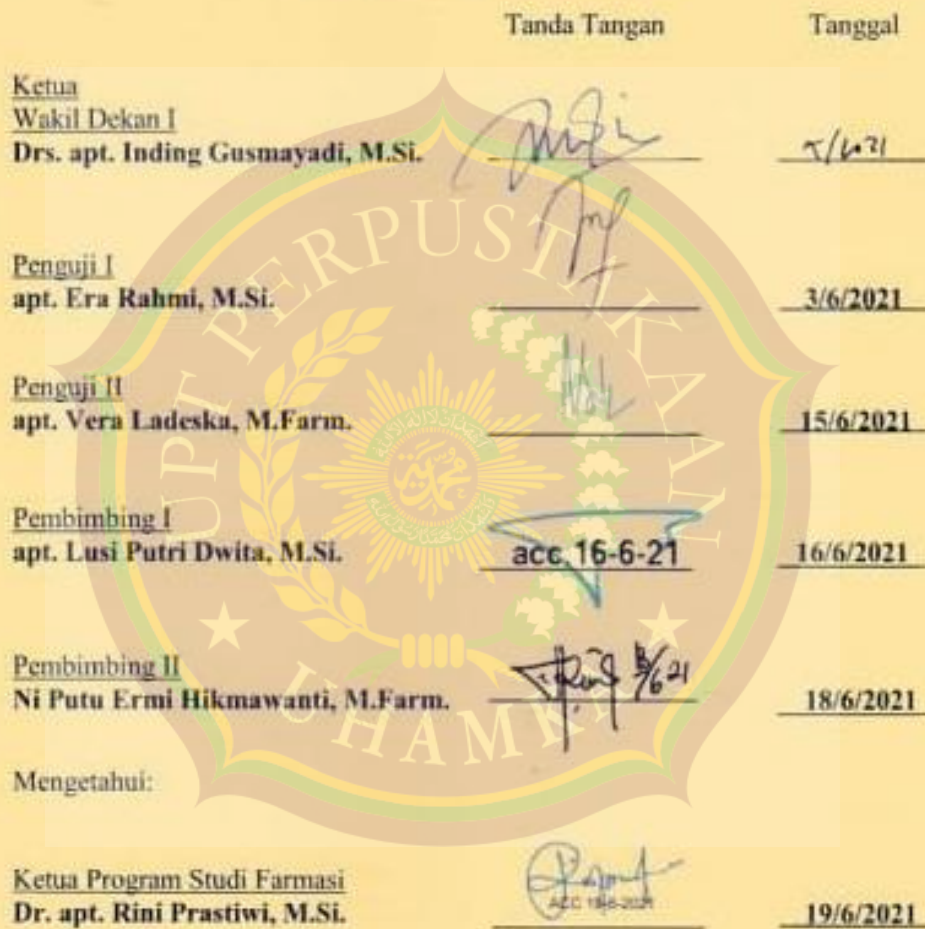 Tanda Tangan Tanggal
Ketua
Wakil Dekan I
Drs. apt. Inding Gusmayadi, M.Si.
Penguji I
apt. Era Rahmi, M.Si. 3/6/2021
Penguji II
apt. Vera Ladeska, M.Farm. 15/6/2021
Pembimbing I
apt. Lusi Putri Dwita, M.Si. acc 16-6-21 16/6/2021
Pembimbing II
Ni Putu Ermi Hikmawanti, M.Farm. 18/6/2021
Mengetahui:
Ketua Program Studi Farmasi
Dr. apt. Rini Prastiwi, M.Si. 19/6/2021
UPT PERPUSTAKAAN
UHAMKA